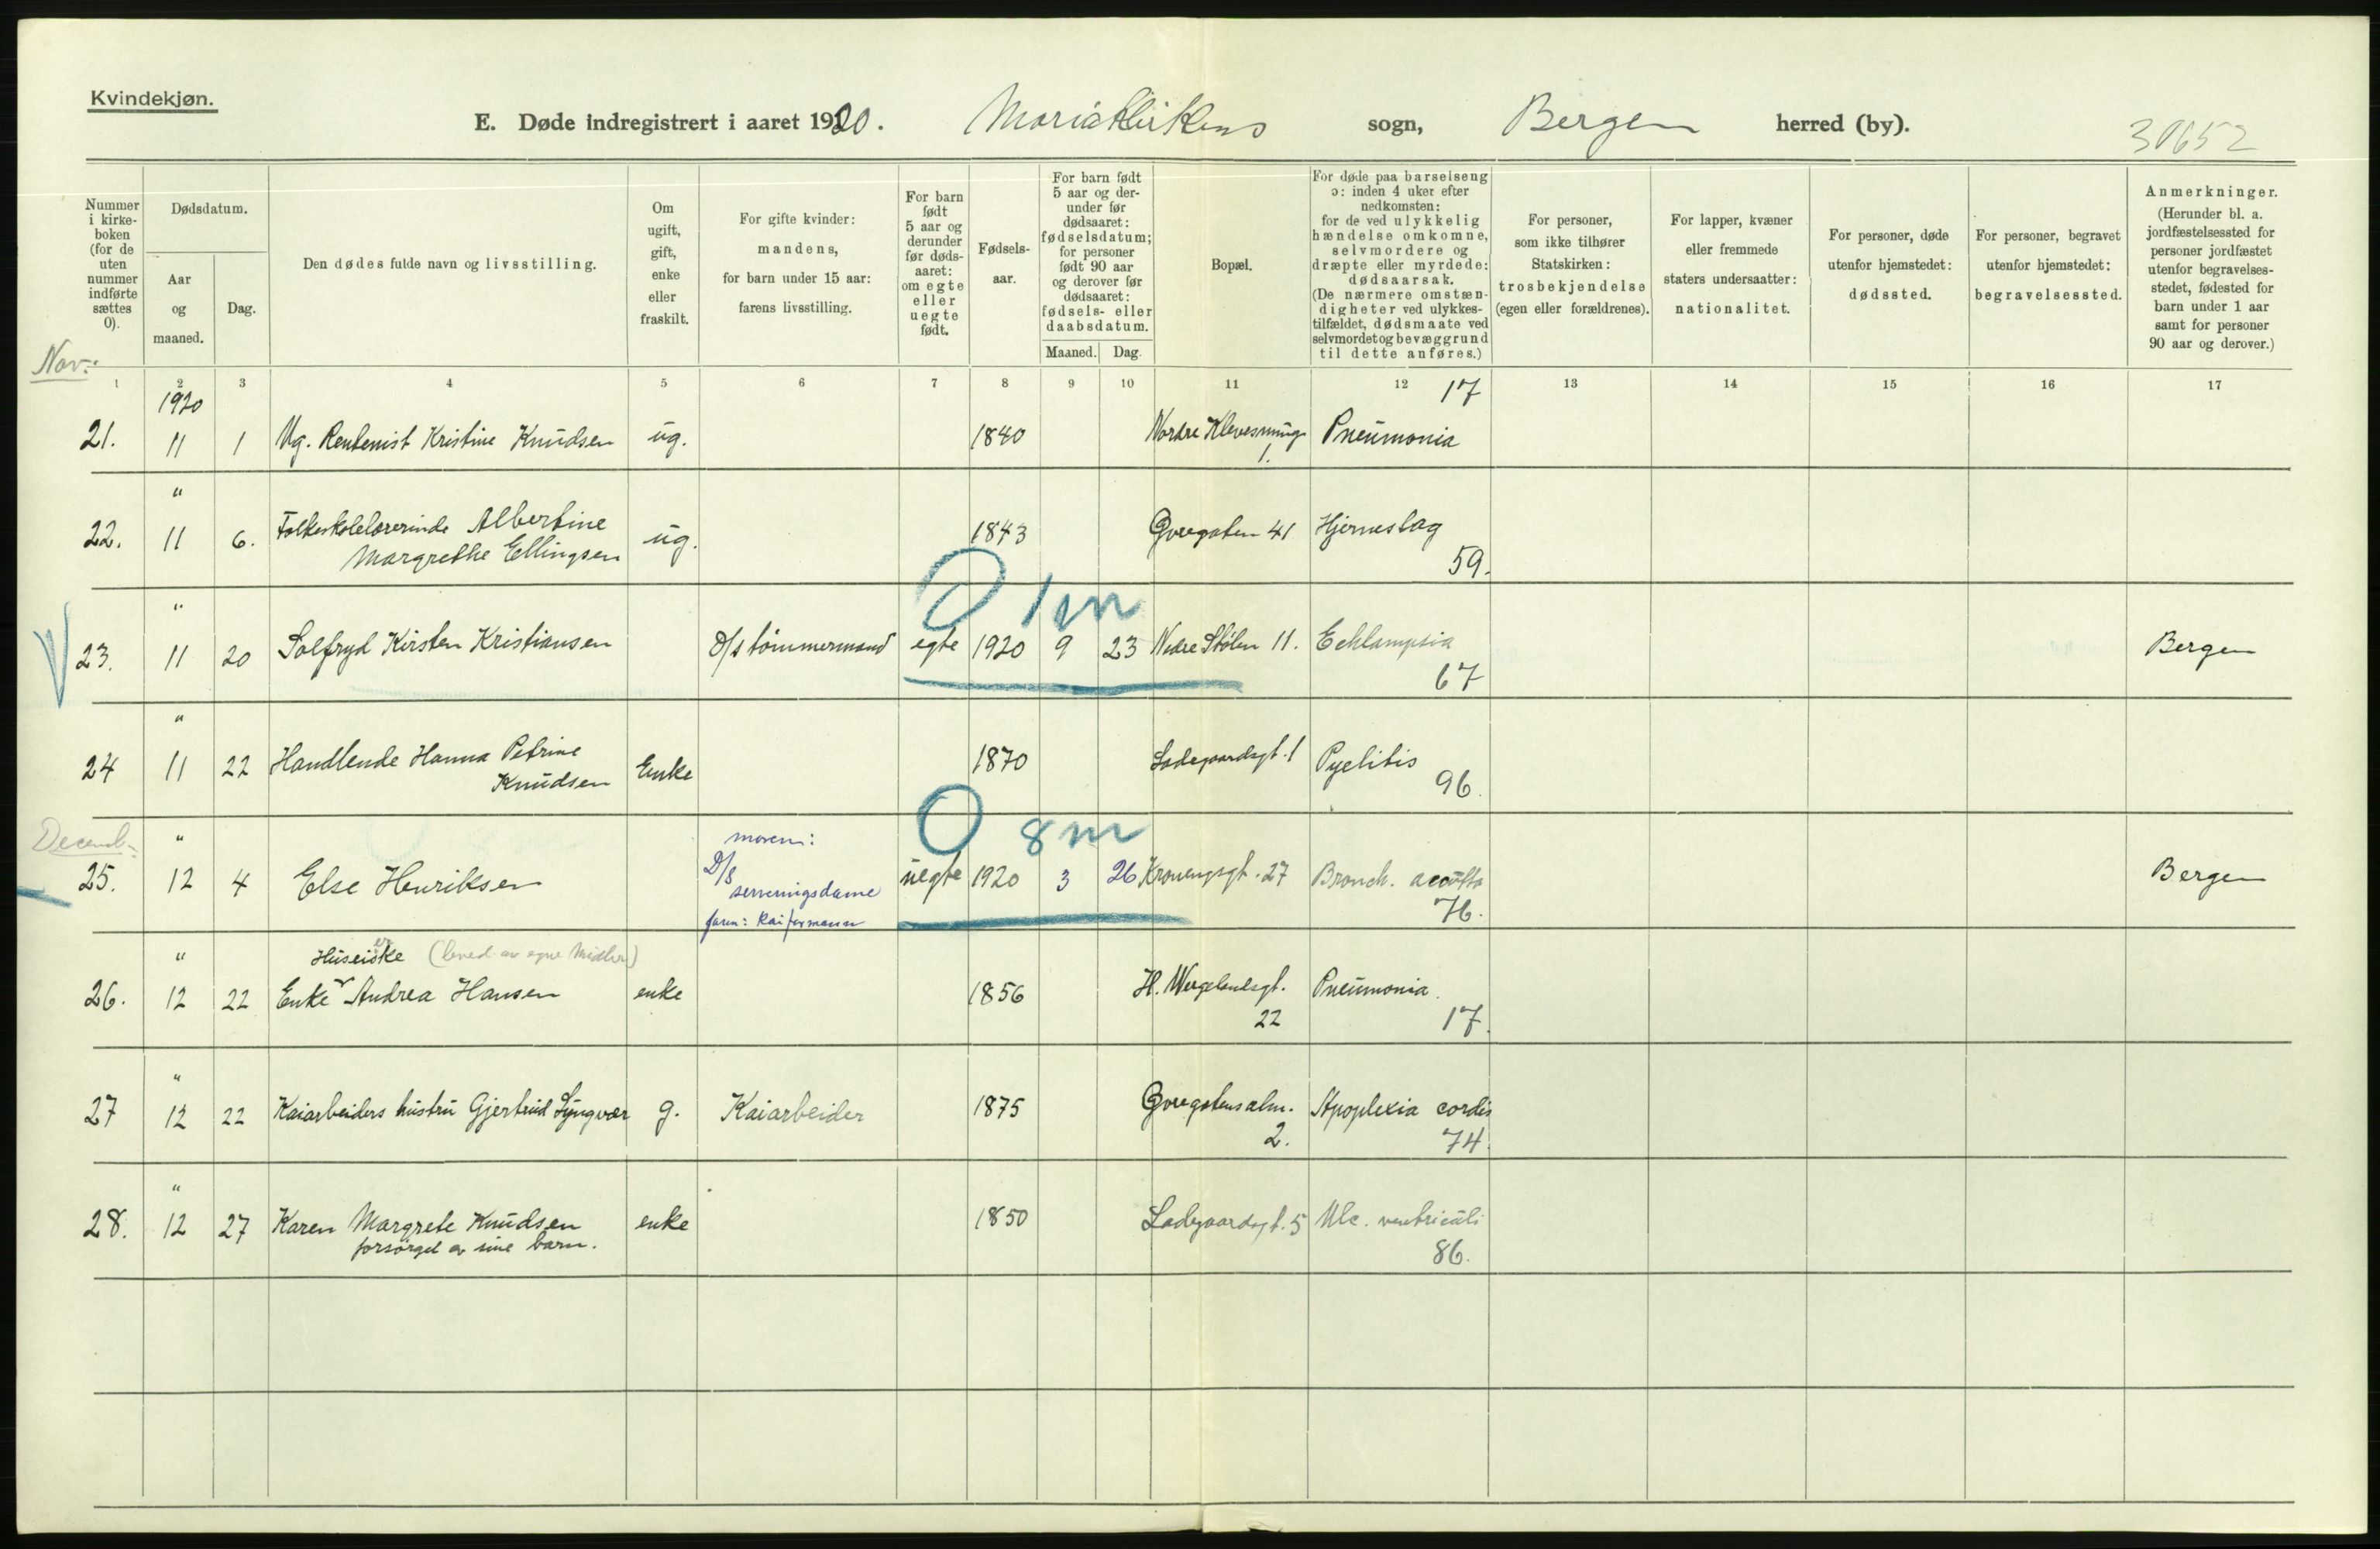 Kvindekjøn.
E. Døde indregistrert i aaret 1920. Mariakirkens sogn, Bergen herred (by).
30652
Nummer i kirke-boken (for de uten nummer indførte sættes 0).
Dødsdatum.
Aar og maaned.
Dag.
Den dødes fulde navn og livsstilling.
Om ugift, gift, enke eller fraskilt.
For gifte kvinder: mandens, for barn under 15 aar: farens livsstilling.
For barn født 5 aar og derunder før døds-aaret: om egte eller uegte født.
Fødsels-aar.
For barn født 5 aar og der-under før dødsaaret: fødselsdatum; for personer født 90 aar og derover før dødsaaret: fødsels- eller daabsdatum.
Maaned. Dag.
Bopæl.
For døde paa barselseng ɔ: inden 4 uker efter nedkomsten: for de ved ulykkelig hændelse omkomne, selvmordere og dræpte eller myrdede: dødsaarsak. (De nærmere omstæn-digheter ved ulykkes-tilfældet, dødsmaate ved selvmordet og bevæggrund til dette anføres.)
For personer, som ikke tilhører Statskirken: trosbekjendelse (egen eller forældrenes).
For lapper, kvæner eller fremmede staters undersaatter: nationalitet.
For personer, døde utenfor hjemstedet: dødssted.
For personer, begravet utenfor hjemstedet: begravelsessted.
Anmerkninger. (Herunder bl. a. jordfæstelsessted for personer jordfæstet utenfor begravelses-stedet, fødested for barn under 1 aar samt for personer 90 aar og derover.)
Nov.
1 2 3 4 5 6 7 8 9 10 11 12 13 14 15 16 17
1920 17
21. 11 1 Ug. Rentenist Kristine Knudsen ug. 1840 Nordre Klevesmug 1. Pneumonia
"
22. 11 6. Folkeskolelærerinde Albertine Margrethe Ellingsen ug. 1843 Øvregaten 41 Hjerneslag 59.
0 1m
"
23. 11 20 Solfryd Kirsten Kristiansen D/s tømmermand egte 1920 9 23 Nedre Stølen 11. Echlampsia 67 Bergen
"
24 11 22 Handlende Hanna Petrine Knudsen Enke 1870 Ladegaardsgt. 1 Pyelitis 96
0 8m
Decemb.
"
25. 12 4 Else Henriksen moren: D/s serveringsdame faren: uegte 1920 3 26 27 Bronch. acouta 76. Bergen
"
(leved av egne Midler)
26. 12 22 Enke Andrea Hansen enke 1856 H. Wergelandsgt. 22 Pneumonia 17.
"
27 12 22 Kaiarbeiders hustru Gjertrud Lyngvær g. Kaiarbeider 1875 Øvregatensalm. 2. Apoplexia cordis 74.
"
28. 12 27 Karen Margrete Knudsen forsørget av sine barn. enke 1850 Ladegaardsgt. 5 Ulc. ventriculi 86.